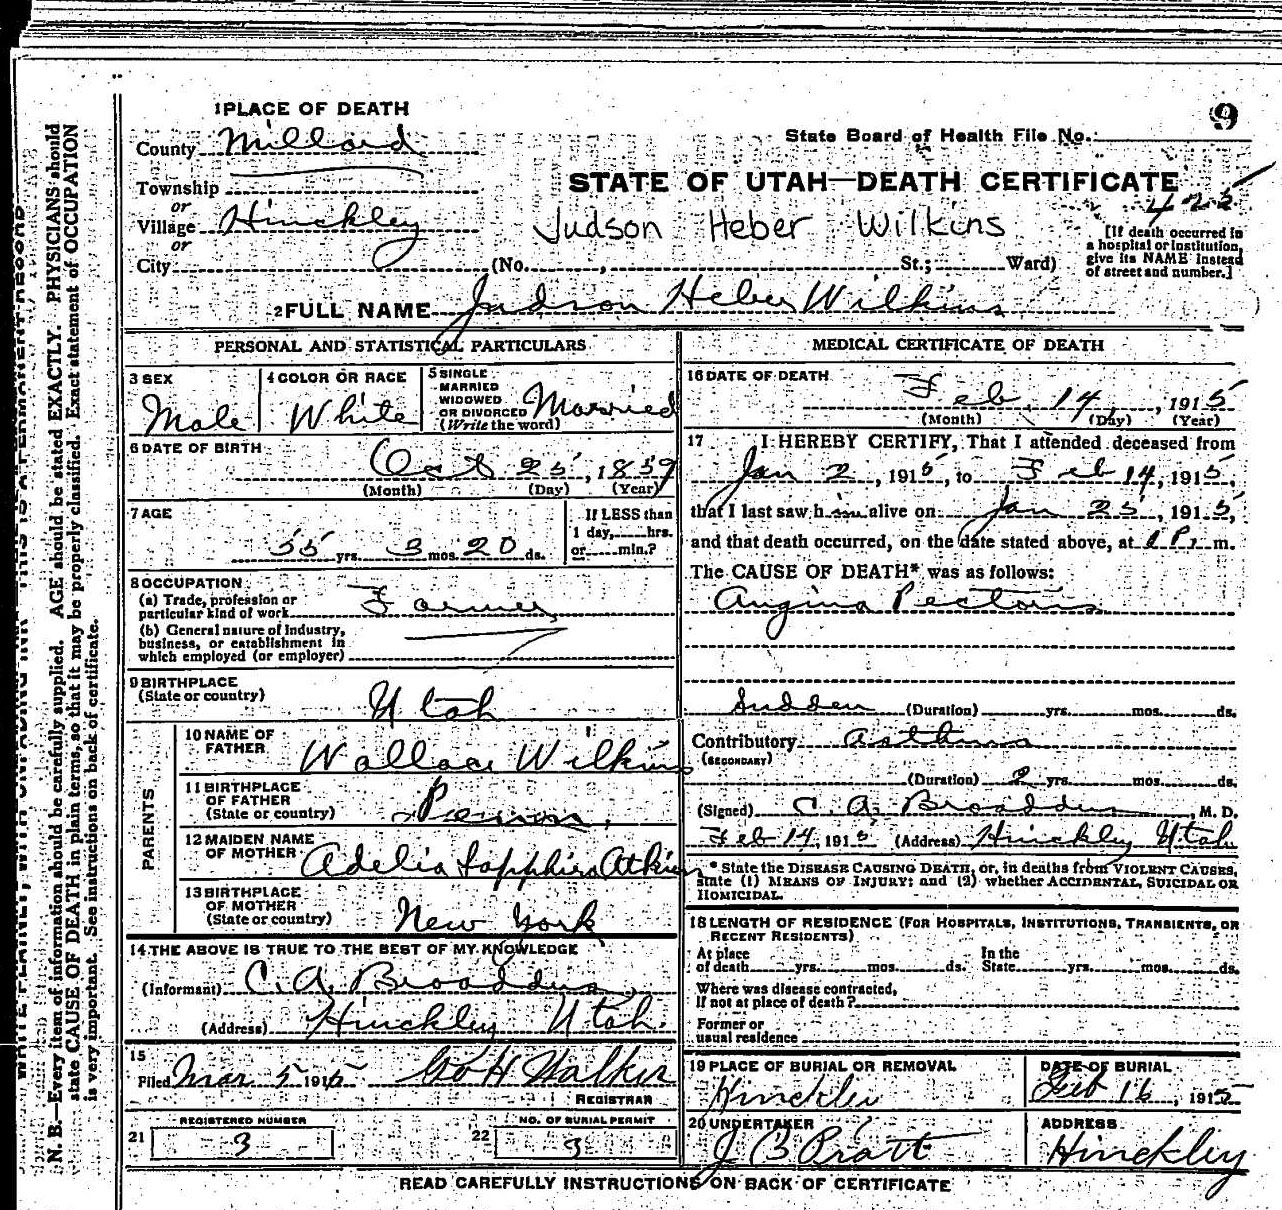 9
1 PLACE OF DEATH
County Millard
State Board of Health File No.
Township
or
Village Hinckley
or
City
STATE OF UTAH—DEATH CERTIFICATE
425
Judson Heber Wilkins
(No. , St.; Ward)
[If death occurred in
a hospital or institution,
give its NAME instead
of street and number.]
2 FULL NAME Judson Heber Wilkins
PERSONAL AND STATISTICAL PARTICULARS
3 SEX
Male
4 COLOR OR RACE
White
5 SINGLE
MARRIED
WIDOWED
OR DIVORCED
(Write the word)
Married
6 DATE OF BIRTH
Oct 25, 1859
(Month) (Day) (Year)
7 AGE
55 yrs. 3 mos. 20 ds.
If LESS than
1 day, hrs.
or min.?
8 OCCUPATION
(a) Trade, profession or
particular kind of work Farmer
(b) General nature of industry,
business, or establishment in
which employed (or employer)
9 BIRTHPLACE
(State or country)
Utah
PARENTS
10 NAME OF
FATHER
Wallace Wilkins
11 BIRTHPLACE
OF FATHER
(State or country)
12 MAIDEN NAME
OF MOTHER
Adelia Sapphira Atkins
13 BIRTHPLACE
OF MOTHER
(State or country)
New York
14 THE ABOVE IS TRUE TO THE BEST OF MY KNOWLEDGE
(Informant) C. A. Broaddus
(Address) Hinckley Utah.
15
Filed Mar 5 1915 Geo H Walker
REGISTRAR
REGISTERED NUMBER
21 3
NO. OF BURIAL PERMIT
22 3
MEDICAL CERTIFICATE OF DEATH
16 DATE OF DEATH
Feb. 14, 1915
(Month) (Day) (Year)
17 I HEREBY CERTIFY, That I attended deceased from
Jan 2, 1915, to Feb 14, 1915,
that I last saw him alive on Jan 25, 1915,
and that death occurred, on the date stated above, at 1 P. m.
The CAUSE OF DEATH* was as follows:
Angina Pectoris
Sudden (Duration) yrs. mos. ds.
Contributory Asthma
(SECONDARY)
(Duration) 2 yrs. mos. ds.
(Signed) C. A. Broaddus, M. D.
Feb 14, 1915 (Address) Hinckley Utah
* State the DISEASE CAUSING DEATH, or, in deaths from VIOLENT CAUSES,
state (1) MEANS OF INJURY; and (2) whether ACCIDENTAL, SUICIDAL OR
HOMICIDAL.
18 LENGTH OF RESIDENCE (FOR HOSPITALS, INSTITUTIONS, TRANSIENTS, OR
RECENT RESIDENTS)
At place
of death yrs. mos. ds.
In the
State yrs. mos. ds.
Where was disease contracted,
If not at place of death?
Former or
usual residence
19 PLACE OF BURIAL OR REMOVAL
Hinckley
DATE OF BURIAL
Feb 16, 1915
20 UNDERTAKER
J B Pratt
ADDRESS
Hinckley
READ CAREFULLY INSTRUCTIONS ON BACK OF CERTIFICATE
N. B.—Every item of information should be carefully supplied. AGE should be stated EXACTLY. PHYSICIANS should
state CAUSE OF DEATH in plain terms, so that it may be properly classified. Exact statement of OCCUPATION
is very important. See instructions on back of certificate.